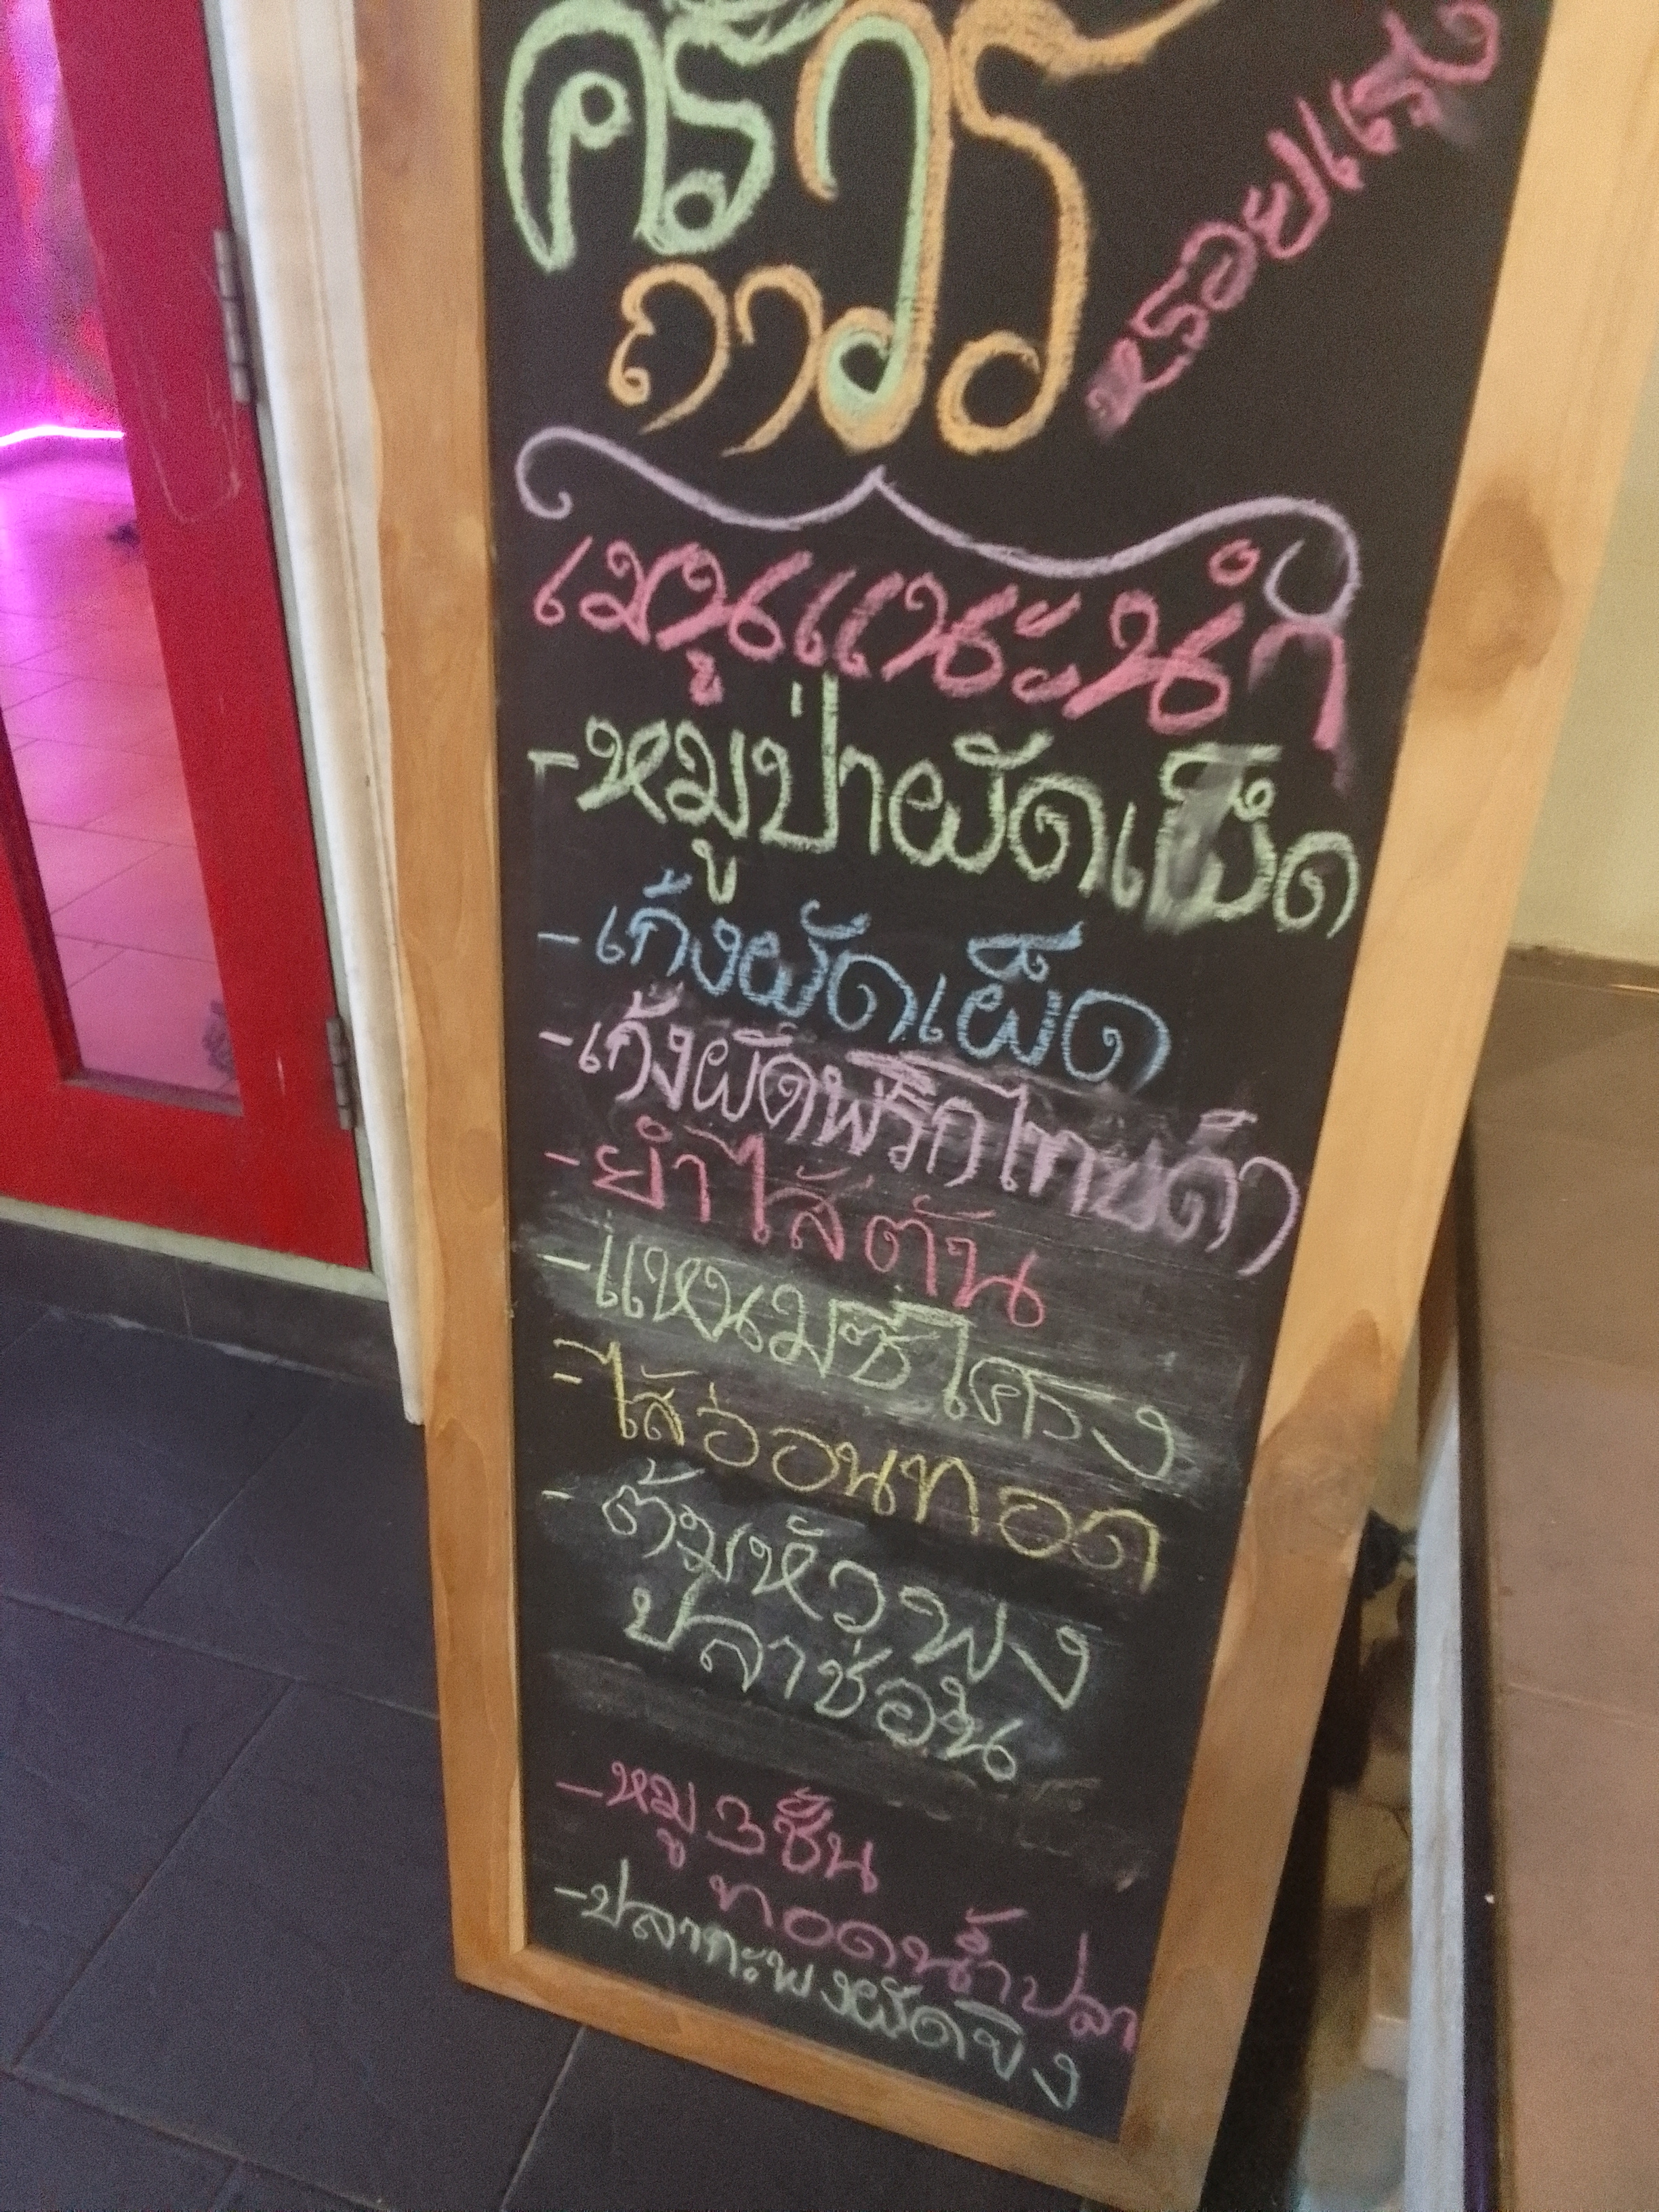 ครัว
ถาวร
หรอยแรง
เมนูแนะนำ
-หมูป่าผัดเผ็ด
-เก้งผัดเผ็ด
-เก้งผัดพริกไทยดำ
-ยำไส้ตัน
-แหนมซี่โครง
-ไส้อ่อนทอด
-ต้มหัวพุง
ปลาช่อน
-หมู 3 ชั้น
ทอดน้ำปลา
-ปลากะพงผัดขิง